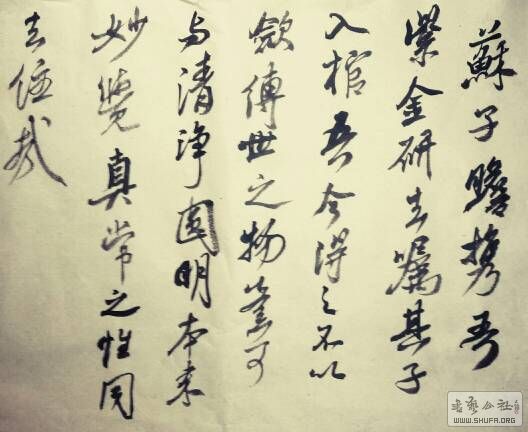 蘇子瞻携吾
紫金研去嘱其子
入棺吾今得之不以
歛傳世之物豈可
与清净圓明本来
妙覺真常之性同
去住哉
書藝公社
WWW.SHUFA.ORG